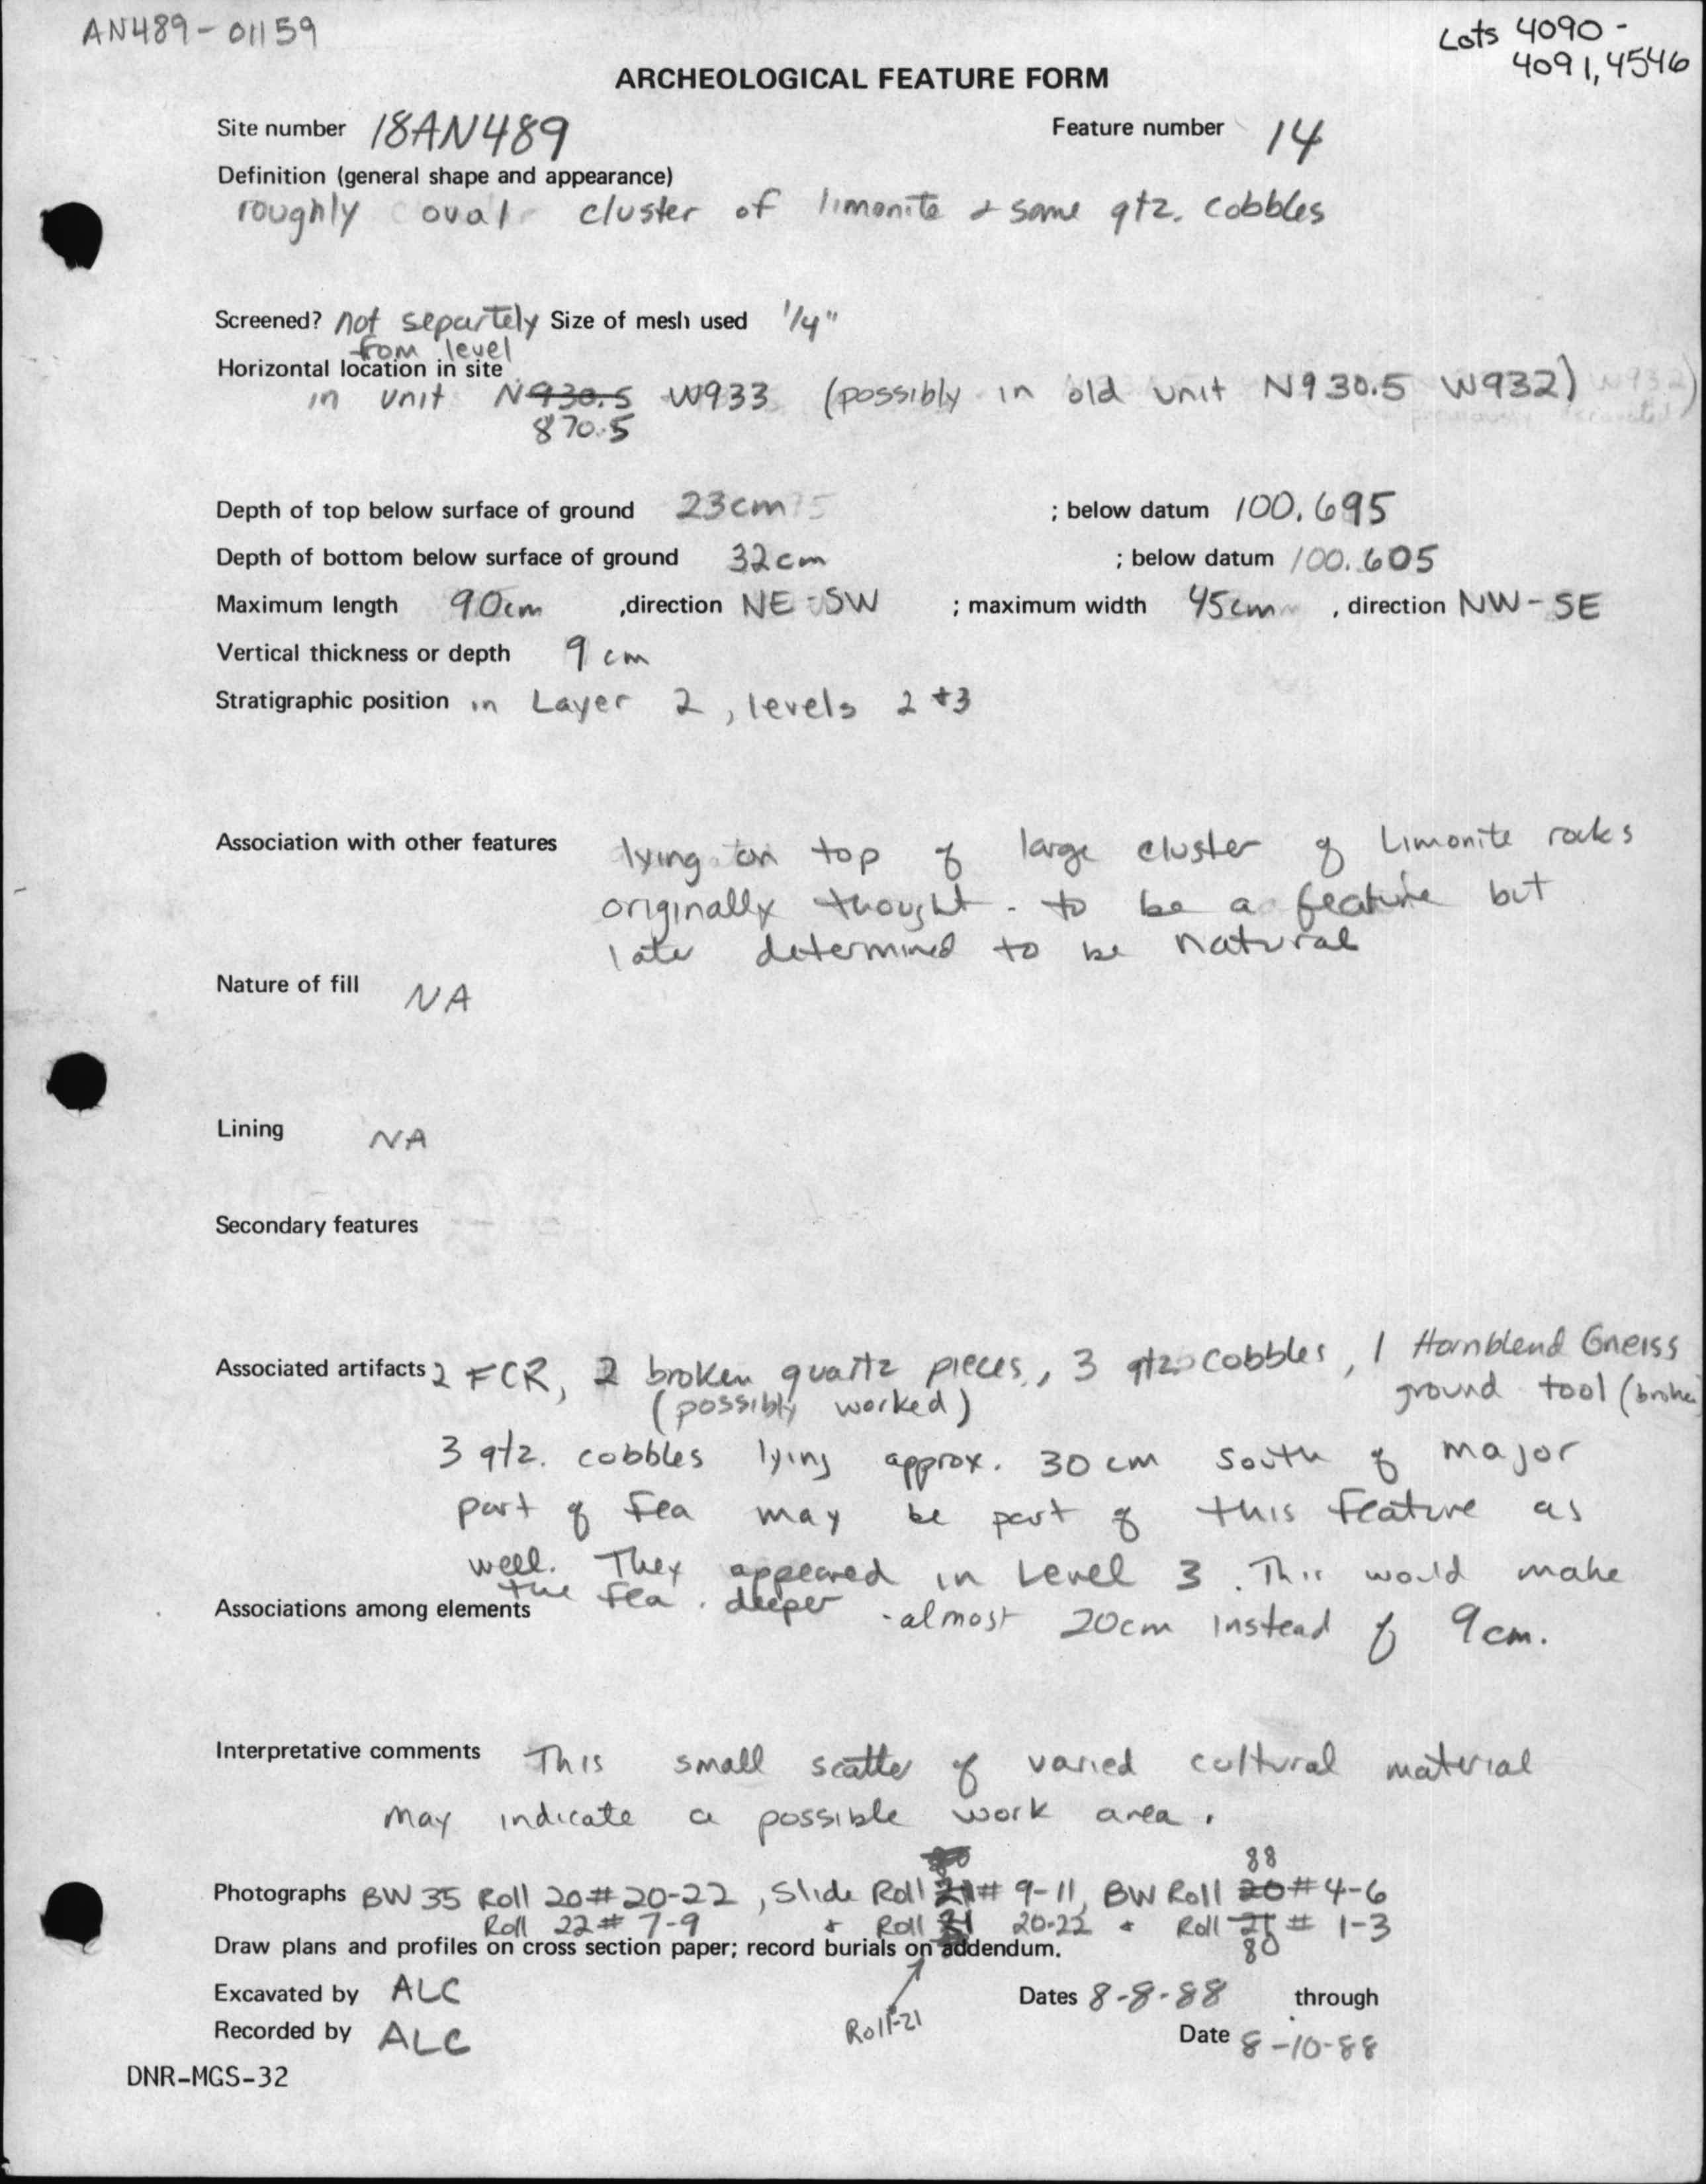 AN489-01159
Lots 4090-
4091, 4546
ARCHEOLOGICAL FEATURE FORM
Site number 18AN489 Feature number 14
Definition (general shape and appearance)
roughly oval cluster of limonite + some qtz. cobbles
Screened? not separtely Size of mesh used 1/4"
from level
Horizontal location in site
in unit N930.5 W933 (possibly in old unit N930.5 W932)
870.5
Depth of top below surface of ground 23cm ; below datum 100.695
Depth of bottom below surface of ground 32cm ; below datum 100.605
Maximum length 90cm ,direction NE-SW ; maximum width 45cm , direction NW-SE
Vertical thickness or depth 9 cm
Stratigraphic position in Layer 2, levels 2 +3
Association with other features lying on top of large cluster of Limonite rocks
originally thought to be a feature but
later determined to be natural
Nature of fill NA
Lining NA
Secondary features
Associated artifacts 2 FCR, 2 broken quartz pieces, 3 qtz cobbles, 1 Hornblend Gneiss
(possibly worked) ground tool (broken
3 qtz. cobbles lying approx. 30 cm south of major
part of fea may be part of this feature as
well. They appeared in Level 3. This would make
the fea. deeper - almost 20cm instead of 9cm.
Associations among elements
Interpretative comments This small scatter of varied cultural material
may indicate a possible work area.
88
Photographs BW 35 Roll 20 # 20-22, Slide Roll 21 # 9-11, BW Roll 20 # 4-6
Roll 22 # 7-9 + Roll 20-22 + Roll 21 # 1-3
80
Draw plans and profiles on cross section paper; record burials on addendum.
Excavated by ALC Dates 8-8-88 through
Roll-21
Recorded by ALC Date 8-10-88
DNR-MGS-32